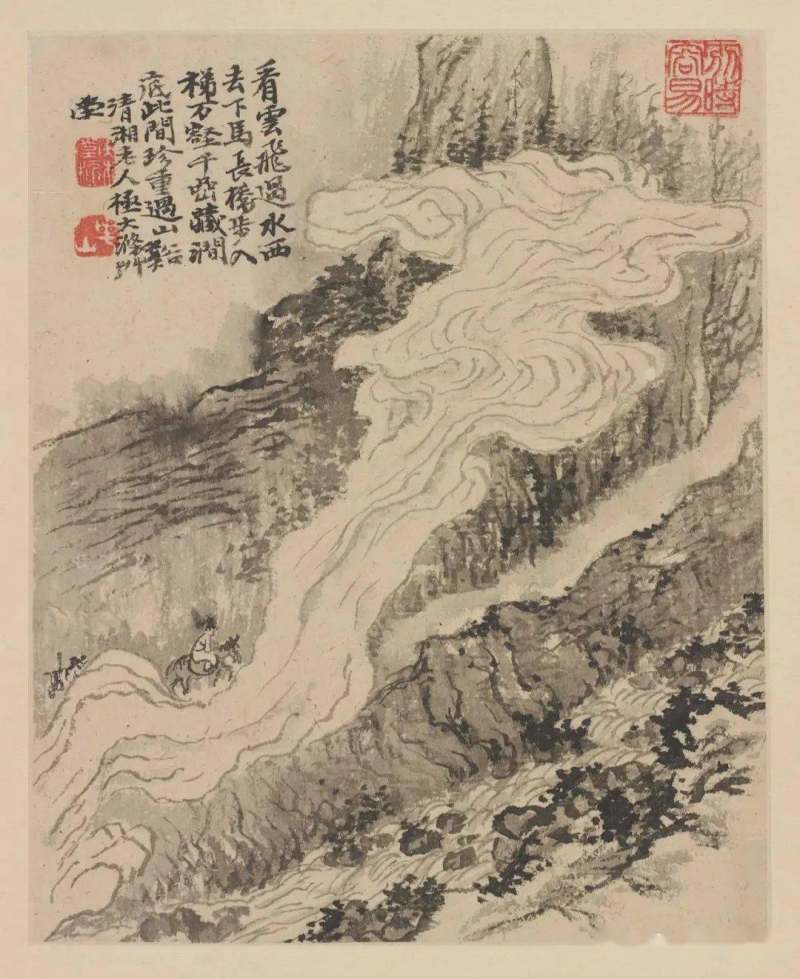 看雲飛過水西
去下馬長橋步入
梯万壑千藏澗
底此間珍重過山谿
清湘老人極大滌艸
堂
別時
容易